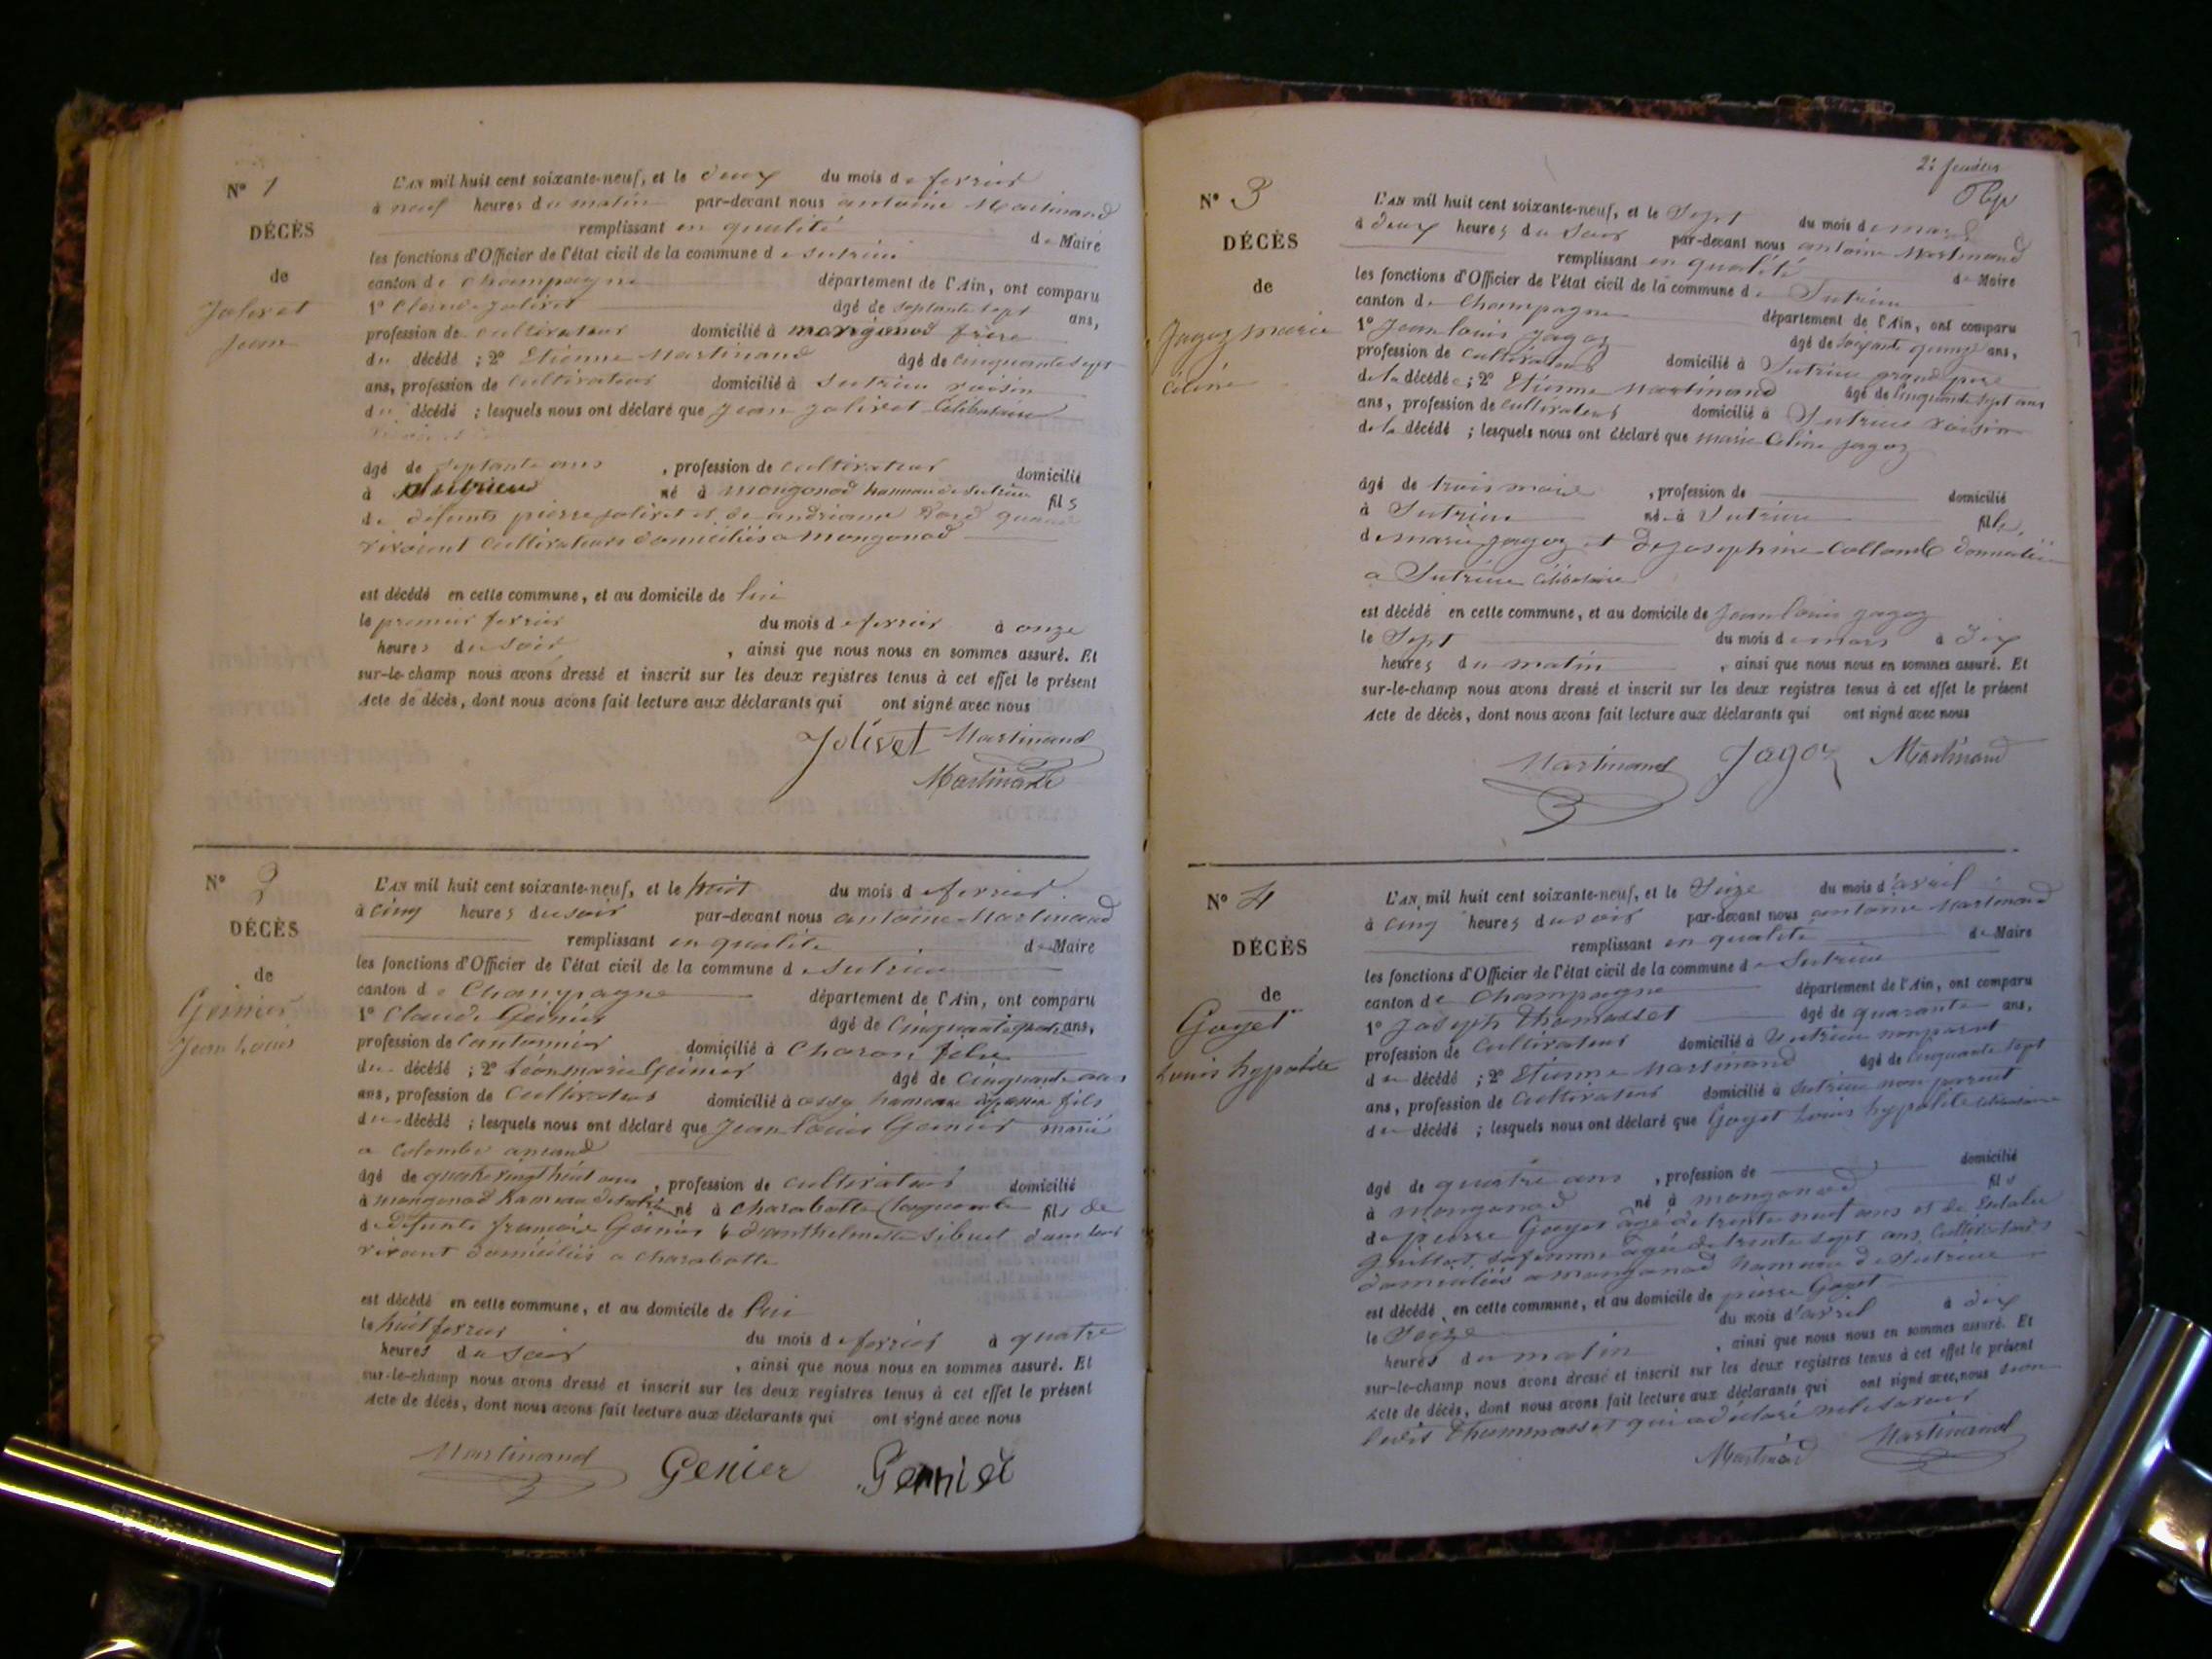 N° 1
DÉCÈS
de
Jolivet
Jean
L'AN mil huit cent soixante-neuf, et le deux du mois de fevrier
à neuf heures du matin par-devant nous antoine Martinand
remplissant en qualité de Maire
les fonctions d'Officier de l'état civil de la commune de Sutrieu
canton de Champagne département de l'Ain, ont comparu
1° Claude Jolivet âgé de septante sept ans,
profession de cultivateur domicilié à mongonod frère
du décédé ; 2° Etienne Martinand âgé de cinquante sept
ans, profession de cultivateur domicilié à Sutrieu voisin
du décédé ; lesquels nous ont déclaré que Jean Jolivet Célibataire
âgé de septante ans , profession de cultivateur domicilié
à Sutrieu né à mongonod hameau de Sutrieu fils
de défunts pierre Jolivet et de andrianne
vivaient cultivateurs domiciliés a mongonod
est décédé en cette commune, et au domicile de lui
le premier fevrier du mois de fevrier à onze
heures du soir , ainsi que nous nous en sommes assuré. Et
sur-le-champ nous avons dressé et inscrit sur les deux registres tenus à cet effet le présent
Acte de décès, dont nous avons fait lecture aux déclarants qui ont signé avec nous
Jolivet Martinand
Martinand
N° 2
DÉCÈS
de
Geinier
Jean Louis
L'AN mil huit cent soixante-neuf, et le huit du mois de fevrier
à cinq heures du soir par-devant nous antoine Martinand
remplissant en qualité de Maire
les fonctions d'Officier de l'état civil de la commune de Sutrieu
canton de Champagne département de l'Ain, ont comparu
1° Claude Geinier âgé de Cinquante ans,
profession de Cantonnier domicilié à Charon fils
du décédé ; 2° Geinier âgé de Cinquante ans
ans, profession de Cultivateur domicilié à hameau fils
du décédé ; lesquels nous ont déclaré que Jean Louis Geinier marié
a Colombe
âgé de quatre vingt huit ans , profession de cultivateur domicilié
à mongonod hameau de Sutrieu né à Charabotte fils de
de Défunts françois Geinier & d'anthelmette Sibuet
vivant domiciliés a Charabotte
est décédé en cette commune, et au domicile de lui
le huit fevrier du mois de fevrier à quatre
heures du soir , ainsi que nous nous en sommes assuré. Et
sur-le-champ nous avons dressé et inscrit sur les deux registres tenus à cet effet le présent
Acte de décès, dont nous avons fait lecture aux déclarants qui ont signé avec nous
Martinand Genier Gernier
2e feuillet
N° 3
DÉCÈS
de
Jagoz marie
Céline
L'AN mil huit cent soixante-neuf, et le Sept du mois de mars
à deux heures du soir par-devant nous antoine Martinand
remplissant en qualité de Maire
les fonctions d'Officier de l'état civil de la commune de Sutrieu
canton de Champagne département de l'Ain, ont comparu
1° Jean louis Jagoz âgé de soixante quinze ans,
profession de cultivateur domicilié à Sutrieu grand pere
de la décédée ; 2° Etienne Martinand âgé de Cinquante sept ans
ans, profession de cultivateur domicilié à Sutrieu voisin
de la décédé ; lesquels nous ont déclaré que marie Céline Jagoz
âgé de trois mois , profession de domicilié
à Sutrieu né à Sutrieu fille
de marie Jagoz et de Josephine Collomb domicilié
a Sutrieu Célibataire
est décédé en cette commune, et au domicile de Jean louis Jagoz
le Sept du mois de mars à dix
heures du matin , ainsi que nous nous en sommes assuré. Et
sur-le-champ nous avons dressé et inscrit sur les deux registres tenus à cet effet le présent
Acte de décès, dont nous avons fait lecture aux déclarants qui ont signé avec nous
Martinand Jagoz Martinand
N° 4
DÉCÈS
de
Goyet
Louis hypolite
L'AN mil huit cent soixante-neuf, et le Seize du mois d'avril
à cinq heures du soir par-devant nous antoine Martinand
remplissant en qualité de Maire
les fonctions d'Officier de l'état civil de la commune de Sutrieu
canton de Champagne département de l'Ain, ont comparu
1° Joseph Thomasset âgé de quarante ans,
profession de cultivateur domicilié à Sutrieu non parent
du décédé ; 2° Etienne Martinand âgé de Cinquante sept
ans, profession de Cultivateur domicilié à Sutrieu non parent
du décédé ; lesquels nous ont déclaré que Goyet Louis hypolite célibataire
âgé de quatre ans , profession de domicilié
à mongonod né à mongonod fils
de pierre Goyet âgé de trente neuf ans et de
Juillet sa femme âgée de trente sept ans Cultivateurs
domiciliés a mongonod hameau de Sutrieu
est décédé en cette commune, et au domicile de pierre Goyet
le Seize du mois d'avril à dix
heures du matin , ainsi que nous nous en sommes assuré. Et
sur-le-champ nous avons dressé et inscrit sur les deux registres tenus à cet effet le présent
Acte de décès, dont nous avons fait lecture aux déclarants qui ont signé avec nous non
ledit Thommasset qui a déclaré ne le savoir
Martinand Martinand